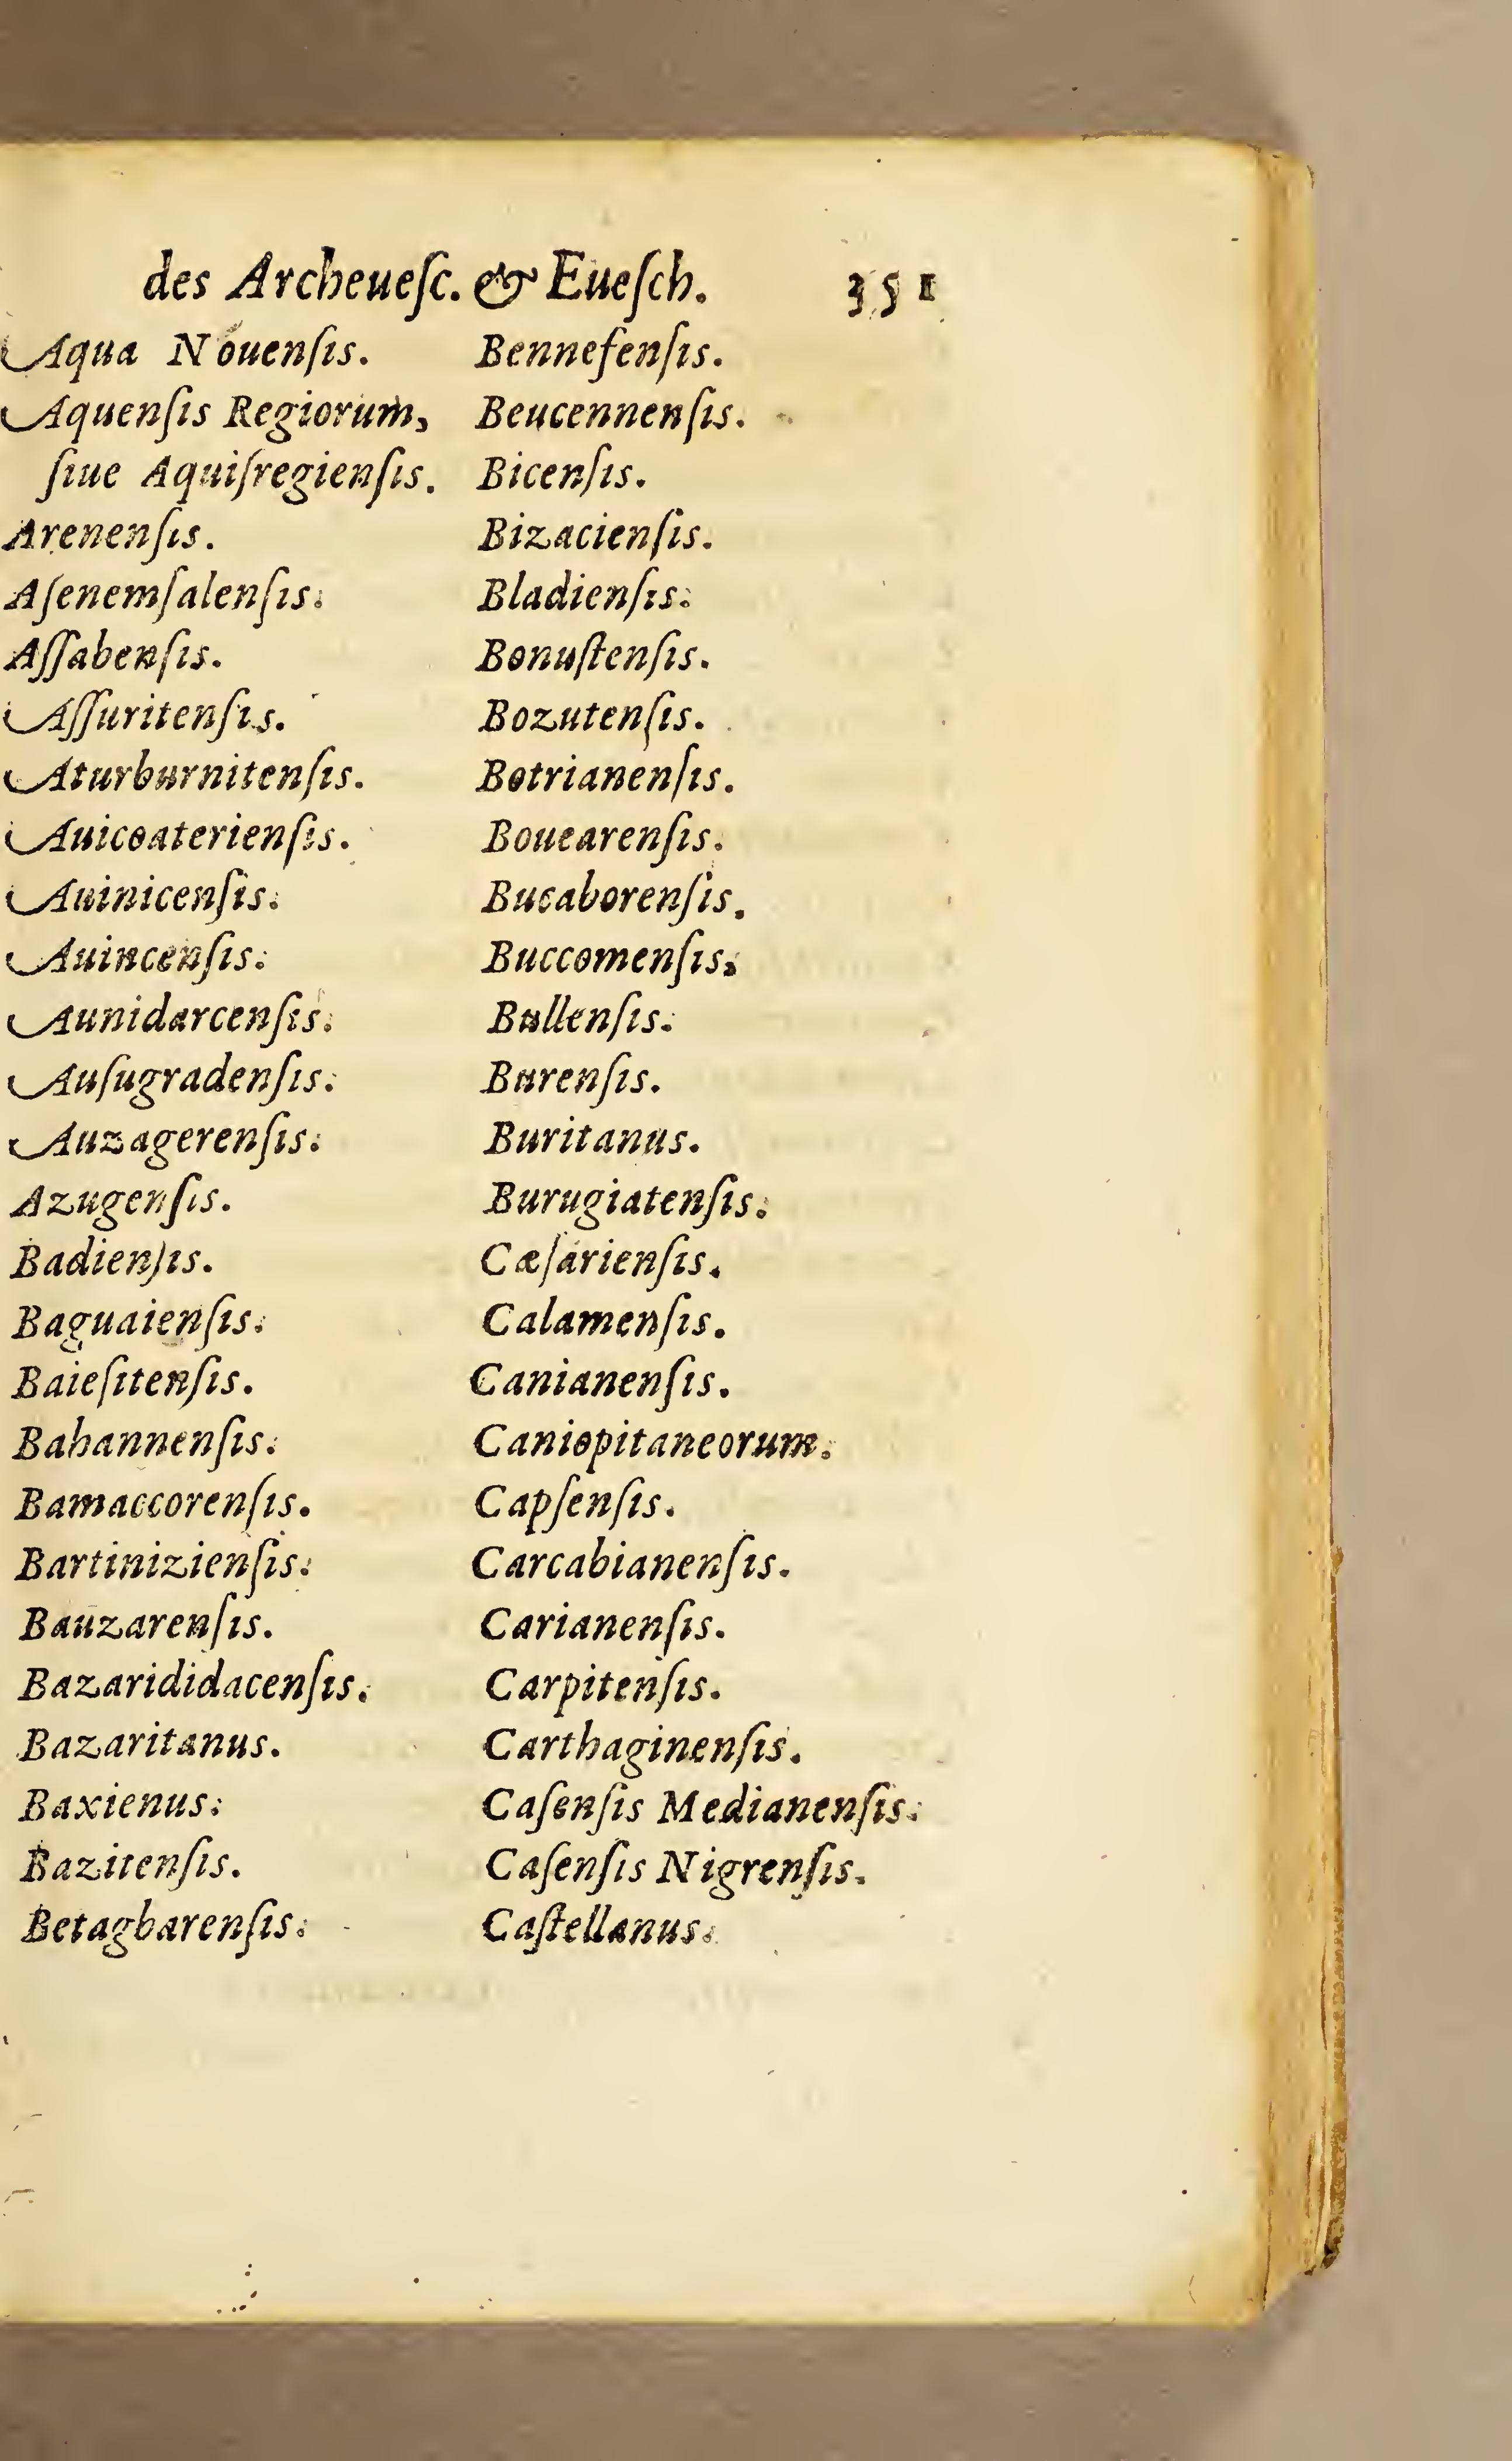 des Archeueſc. & Eueſch. 351
Aqua Nouenſis.
Aquenſis Regiorum,
ſiue Aquiſregienſis.
Arenenſis.
Aſenemſalenſis.
Aſſabenſis.
Aſſuritenſis.
Aturburnitenſis.
Auicoaterienſis.
Auinicenſis.
Auincenſis.
Aunidarcenſis.
Auſugradenſis.
Auzagerenſis.
Azugenſis.
Badienſis.
Baguaienſis.
Baieſitenſis.
Bahannenſis.
Bamaccorenſis.
Bartinizienſis.
Bauzarenſis.
Bazarididacenſis.
Bazaritanus.
Baxienus.
Bazitenſis.
Betagbarenſis.
Bennefenſis.
Beucennenſis.
Bicenſis.
Bizacienſis.
Bladienſis.
Bonuſtenſis.
Bozutenſis.
Botrianenſis.
Bouearenſis.
Bucaborenſis.
Buccomenſis.
Bullenſis.
Burenſis.
Buritanus.
Burugiatenſis.
Cæſarienſis.
Calamenſis.
Canianenſis.
Caniopitaneorum.
Capſenſis.
Carcabianenſis.
Carianenſis.
Carpitenſis.
Carthaginenſis.
Caſenſis Medianenſis.
Caſenſis Nigrenſis.
Caſtellanus.